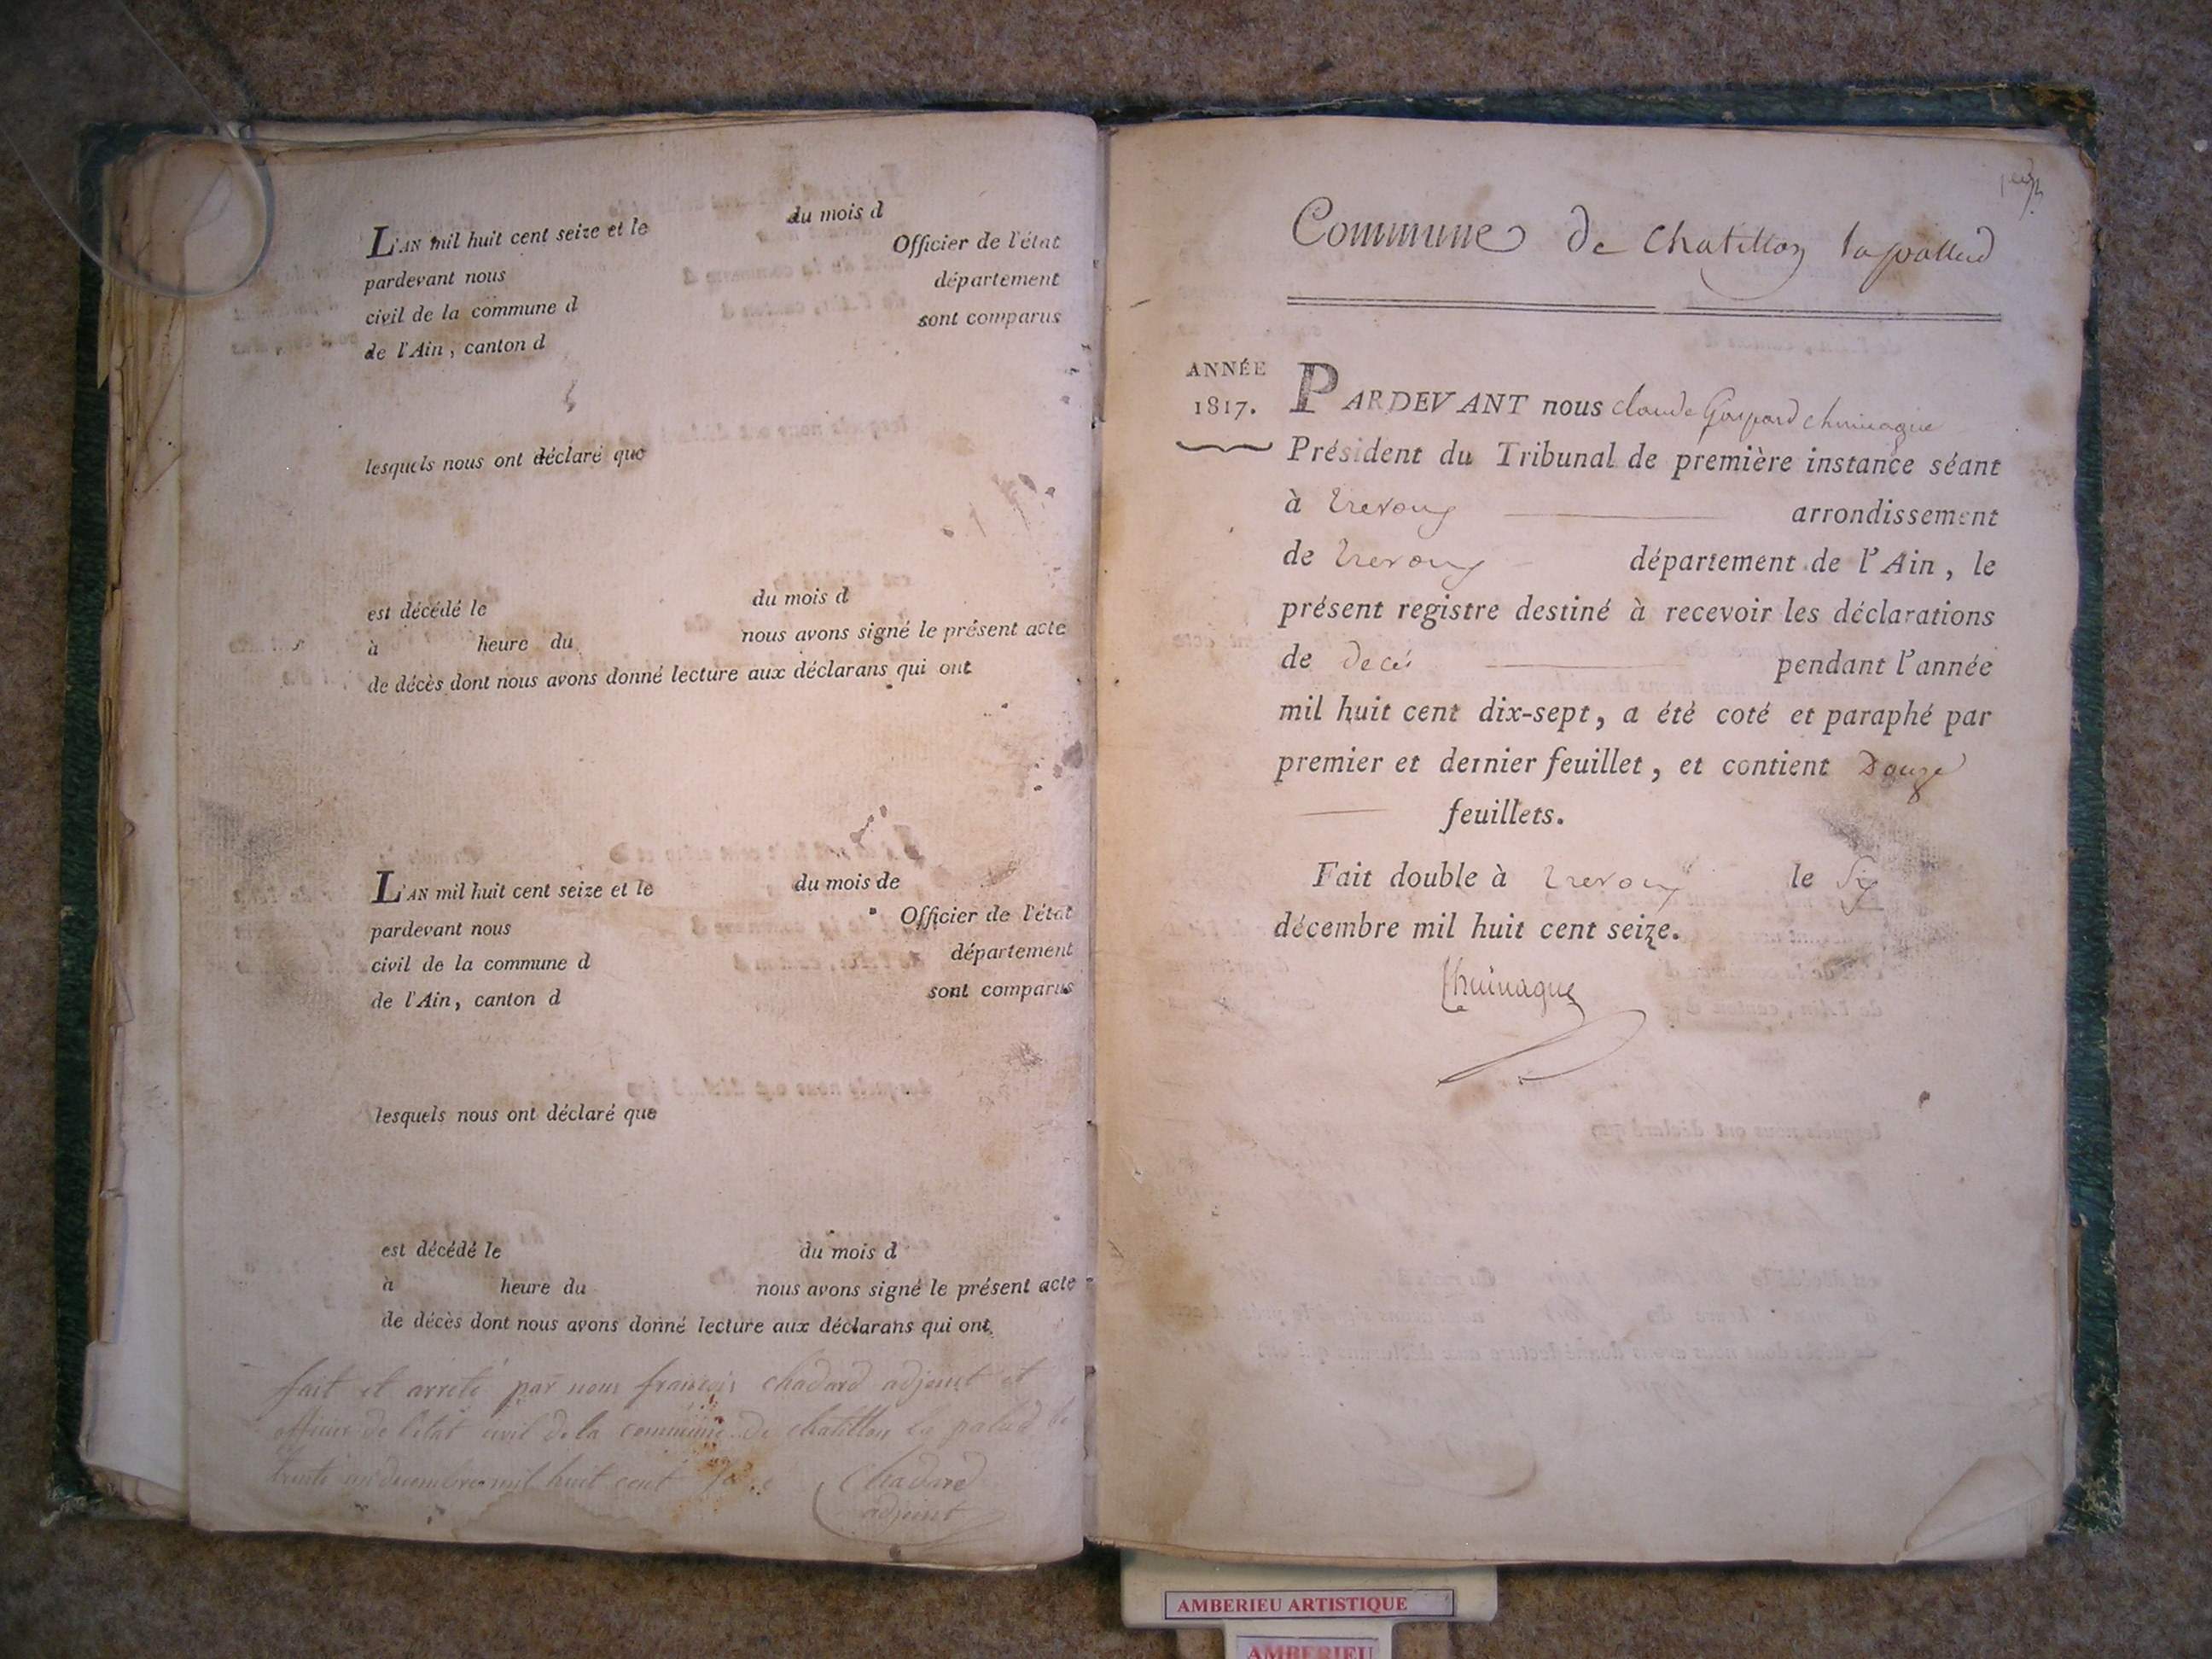 L'AN mil huit cent seize et le du mois d
pardevant nous Officier de l'état
civil de la commune d département
de l'Ain, canton d sont comparus
lesquels nous ont déclaré que
est décédé le du mois d
à heure du nous avons signé le présent acte
de décès dont nous avons donné lecture aux déclarans qui ont
L'AN mil huit cent seize et le du mois de
pardevant nous Officier de l'état
civil de la commune d département
de l'Ain, canton d sont comparus
lesquels nous ont déclaré que
est décédé le du mois d
à heure du nous avons signé le présent acte
de décès dont nous avons donné lecture aux déclarans qui ont
fait et arrêté par nous françois chadard adjoint et
officier de l'état civil de la commune de chatillon la palud le
trente un decembre mil huit cent seize Chadard
adjoint
Commune de Chatillon lapallud
ANNÉE
1817.
PARDEVANT nous claude Gaspard
Président du Tribunal de première instance séant
à trevoux arrondissement
de trevoux département de l'Ain, le
présent registre destiné à recevoir les déclarations
de decès pendant l'année
mil huit cent dix-sept, a été coté et paraphé par
premier et dernier feuillet, et contient Douze
feuillets.
Fait double à trevoux le Six
décembre mil huit cent seize.
AMBERIEU ARTISTIQUE
AMBERIEU